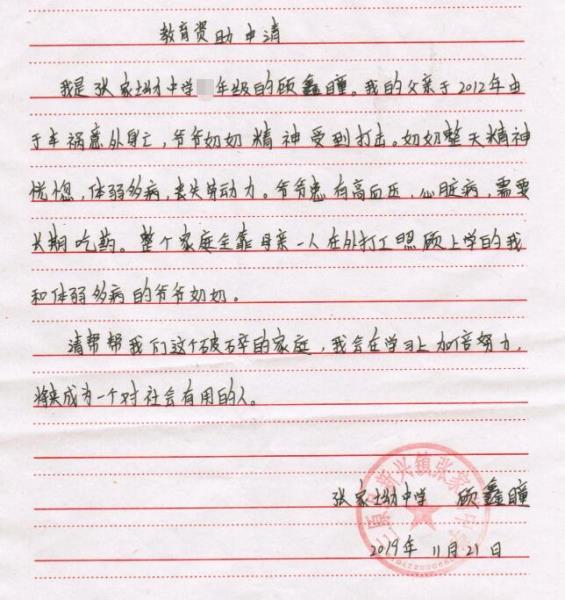 教育资助申请
我是张家坳中学年级的顾鑫瞳。我的父亲于2012年由
于车祸意外身亡，爷爷奶奶精神受到打击。奶奶整天精神
恍惚，体弱多病，丧失劳动力。爷爷患有高血压，心脏病，需要
长期吃药。整个家庭全靠母亲一人在外打工照顾上学的我
和体弱多病的爷爷奶奶。
请帮帮我们这个破碎的家庭，我会在学习上加倍努力，
将来成为一个对社会有用的人。
张家坳中学 顾鑫瞳
2019年11月21日
三原 新兴镇张家 中学